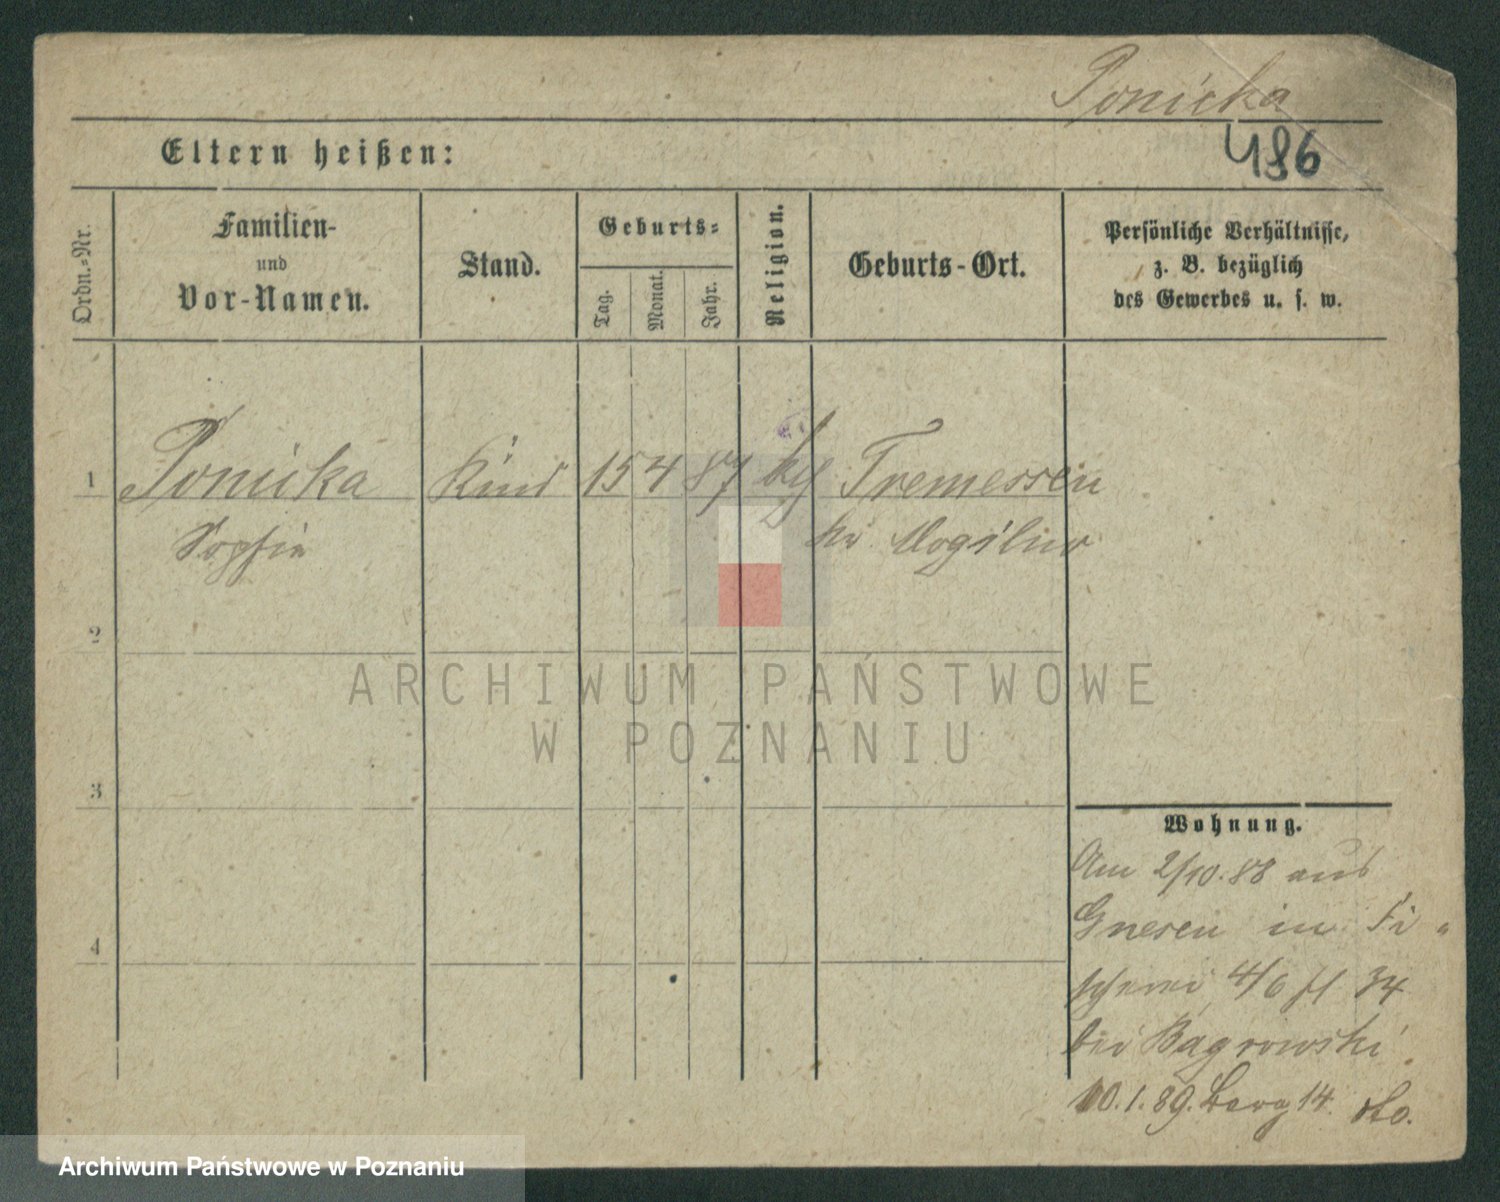 Ponicka
486
Eltern heißen:
Ordn.-Nr.
Familien-
und
Vor-Namen.
Stand.
Geburts-
Tag.
Monat.
Jahr.
Religion.
Geburts-Ort.
Persönliche Verhältnisse,
z. B. bezüglich
des Gewerbes u. s. w.
1 Ponicka Kind 15 4 87 Tremessen
Sophia Kr Mogilno
2
3
4
Wohnung.
Am 2/10.88 aus
Gnesen in Fi-
scherei 4/6 34
bei Bagrowski
10.1.89. Berg 14. dto.
ARCHIWUM PAŃSTWOWE
W POZNANIU
Archiwum Państwowe w Poznaniu